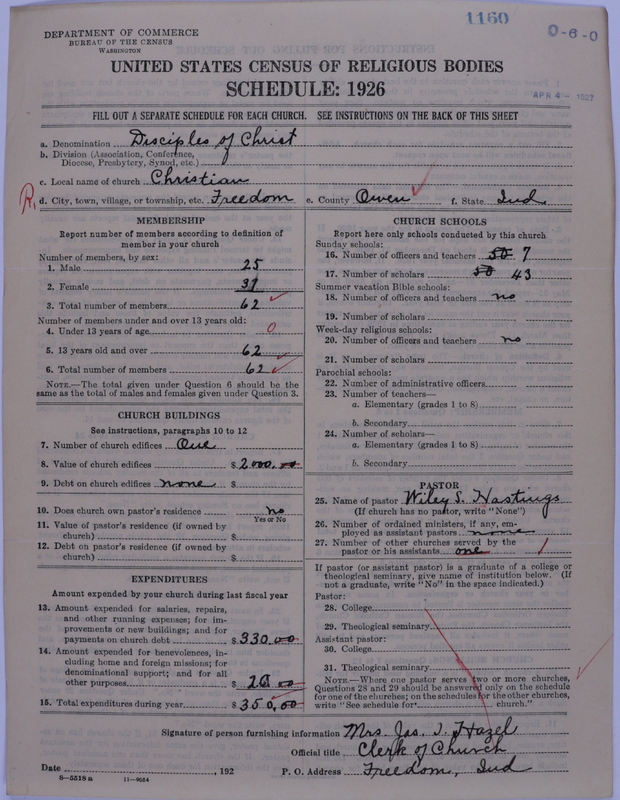 1160
0-6-0
DEPARTMENT OF COMMERCE
BUREAU OF THE CENSUS
WASHINGTON
APR 4 - 1927
UNITED STATES CENSUS OF RELIGIOUS BODIES
SCHEDULE: 1926
FILL OUT A SEPARATE SCHEDULE FOR EACH CHURCH. SEE INSTRUCTIONS ON THE BACK OF THIS SHEET
a. Denomination Disciples of Christ
b. Division (Association, Conference,
Diocese, Presbytery, Synod, etc.)
c. Local name of church Christian
R. d. City, town, village, or township, etc. Freedom e. County Owen f. State Ind
MEMBERSHIP
Report number of members according to definition of
member in your church
Number of members, by sex:
1. Male 25
2. Female 37
3. Total number of members 62
Number of members under and over 13 years old:
4. Under 13 years of age 0
5. 13 years old and over 62
6. Total number of members 62
NOTE.—The total given under Question 6 should be
same as the total of males and females given under Question 3.
CHURCH BUILDINGS
See instructions, paragraphs 10 to 12
7. Number of church edifices One
8. Value of church edifices $ 2000.00
9. Debt on church edifices none $
10. Does church own pastor's residence no
Yes or No
11. Value of pastor's residence (if owned by
church) $
12. Debt on pastor's residence (if owned by
church) $
EXPENDITURES
Amount expended by your church during last fiscal year
13. Amount expended for salaries, repairs,
and other running expenses; for im-
provements or new buildings; and for
payments on church debt $ 330.00
14. Amount expended for benevolences, in-
cluding home and foreign missions; for
denominational support; and for all
other purposes $ 20.00
15. Total expenditures during year $ 350.00
CHURCH SCHOOLS
Report here only schools conducted by this church
Sunday schools:
16. Number of officers and teachers 50 7
17. Number of scholars 50 43
Summer vacation Bible schools:
18. Number of officers and teachers no
19. Number of scholars
Week-day religious schools:
20. Number of officers and teachers no
21. Number of scholars
Parochial schools:
22. Number of administrative officers
23. Number of teachers—
a. Elementary (grades 1 to 8)
b. Secondary
24. Number of scholars—
a. Elementary (grades 1 to 8)
b. Secondary
PASTOR
25. Name of pastor Wiley S. Hastings
(If church has no pastor, write "None")
26. Number of ordained ministers, if any, em-
ployed as assistant pastors none
27. Number of other churches served by the
pastor or his assistants one 1
If pastor (or assistant pastor) is a graduate of a college or
theological seminary, give name of institution below. (If
not a graduate, write "No" in the space indicated.)
Pastor:
28. College
29. Theological seminary
Assistant pastor:
30. College
31. Theological seminary
NOTE.—Where one pastor serves two or more churches,
Questions 28 and 29 should be answered only on the schedule
for one of the churches; on the schedules for the other churches,
write "See schedule for church."
Signature of person furnishing information Mrs. Jas. J. Hazel
Official title Clerk of Church
Date , 192 P. O. Address Freedom, Ind
8—5518 a 11—9654